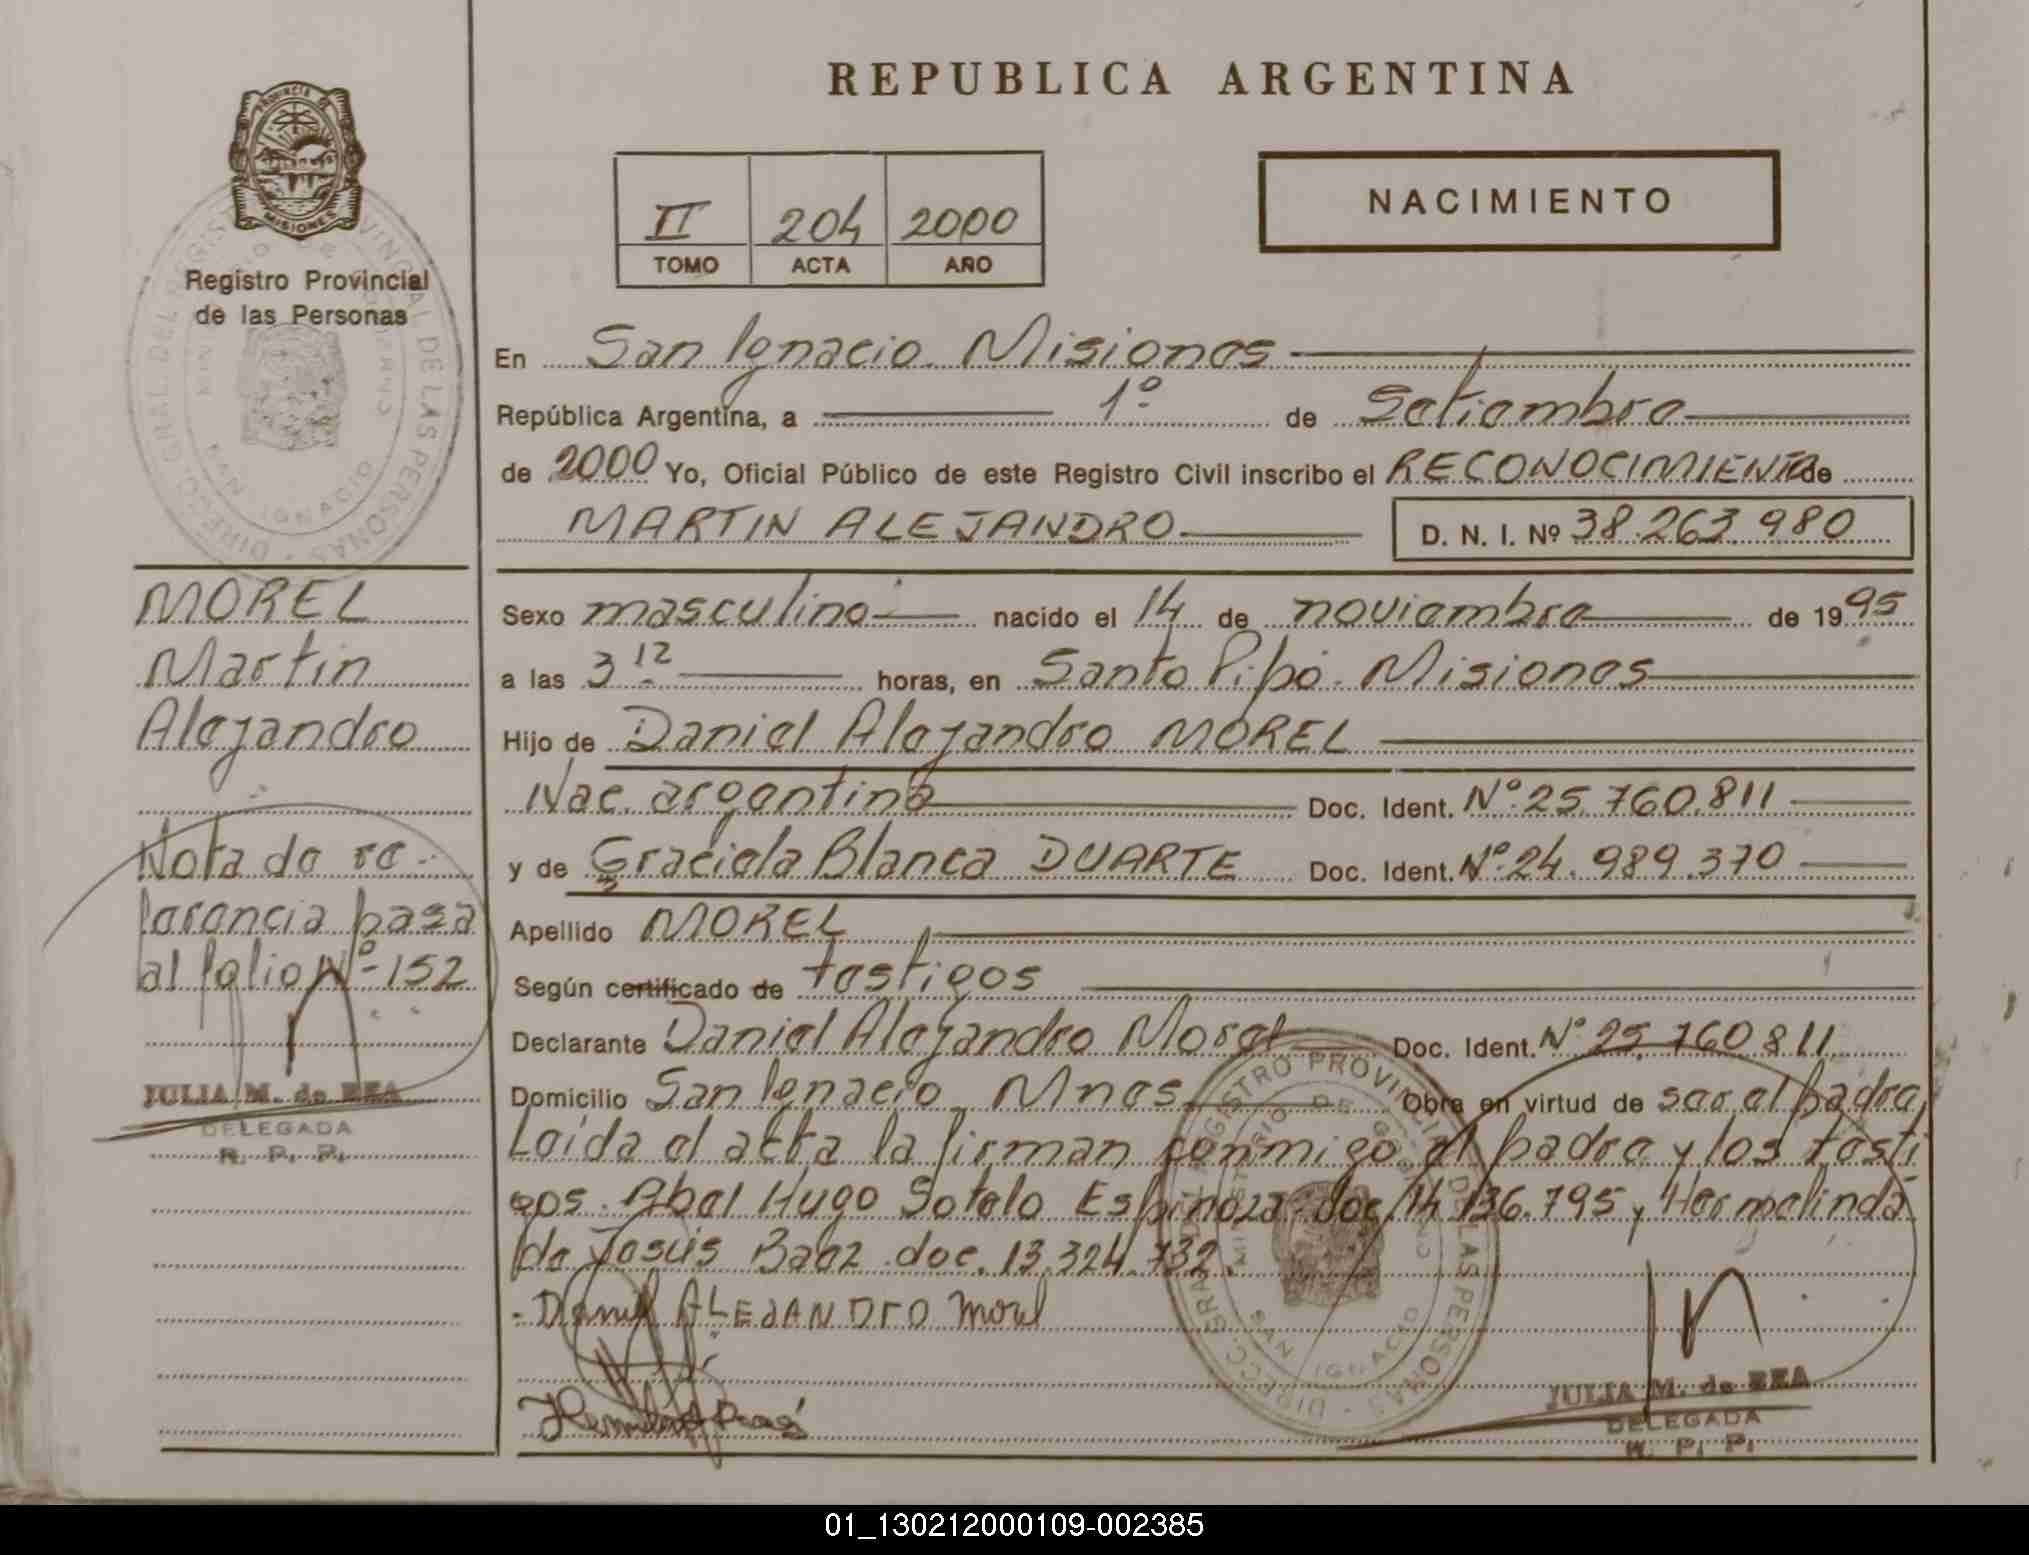 REPUBLICA ARGENTINA
PROVINCIA DE
MISIONES
Registro Provincial
de las Personas
II 204 2000
TOMO ACTA AÑO
NACIMIENTO
En San Ignacio Misiones
República Argentina, a 1º de Setiembre
de 2000 Yo, Oficial Público de este Registro Civil inscribo el RECONOCIMIENTO de
MARTIN ALEJANDRO D. N. I. Nº 38.263.980
MOREL
Martin
Alejandro
Nota de re-
ferencia pasa
al folio Nº 152
JULIA M. de REA
DELEGADA
R. P. P.
Sexo masculino nacido el 14 de noviembre de 1995
a las 3 12 horas, en Santo Pipó. Misiones
Hijo de Daniel Alejandro MOREL
Nac. argentina Doc. Ident. Nº 25.760.811
y de Graciela Blanca DUARTE Doc. Ident. Nº 24.989.370
Apellido MOREL
Según certificado de testigos
Declarante Daniel Alejandro Morel Doc. Ident. Nº 25.760.811
Domicilio San Ignacio Mnes Obra en virtud de ser el padre
Leída el acta la firman conmigo el padre y los testi
gos. Abel Hugo Sotelo Espinoza doc 14.136.795 y Hermelinda
de Jesús Baez doc. 13.324.732.
- Daniel ALEJANDrO Morel
JULIA M. de REA
DELEGADA
R. P. P.
DIRECC. GRAL DEL REGISTRO PROVINCIAL DE LAS PERSONAS
MINISTERIO DE GOBIERNO
SAN IGNACIO
01_130212000109-002385